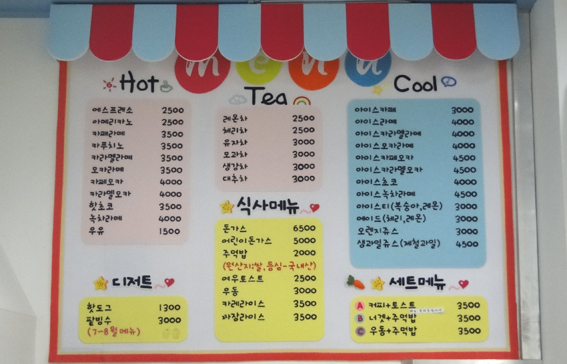 menu
Hot
에스프레소 2500
아메리카노 2500
카페라떼 3500
카푸치노 3500
카라멜라떼 3500
모카라떼 3500
카페모카 4000
카라멜모카 4000
핫쵸코 3500
녹차라떼 4000
우유 1500
디저트
핫도그 1300
팥빙수 3000
(7-8월메뉴)
Tea
레몬차 2500
체리차 2500
유자차 3000
모과차 3000
생강차 3000
대추차 3000
식사메뉴
돈가스 6500
어린이돈가스 5000
주먹밥 2000
(원산지:쌀,등심-국내산)
야우토스트 2500
우동 3000
카레라이스 3500
짜장라이스 3500
Cool
아이스카페 3000
아이스라떼 4000
아이스카랄멜라떼 4000
아이스모카라떼 4000
아이스카페모카 4500
아이스카랄멜모카 4500
아이스쵸코 4000
아이스녹차라떼 4500
아이스티(복숭아,레몬) 3000
에이드(체리,레몬) 3000
오렌지쥬스 3000
생과일쥬스(제철과일) 4500
세트메뉴
A 커피+토스트 3500
B 너겟+주먹밥 3500
C 우동+주먹밥 3500